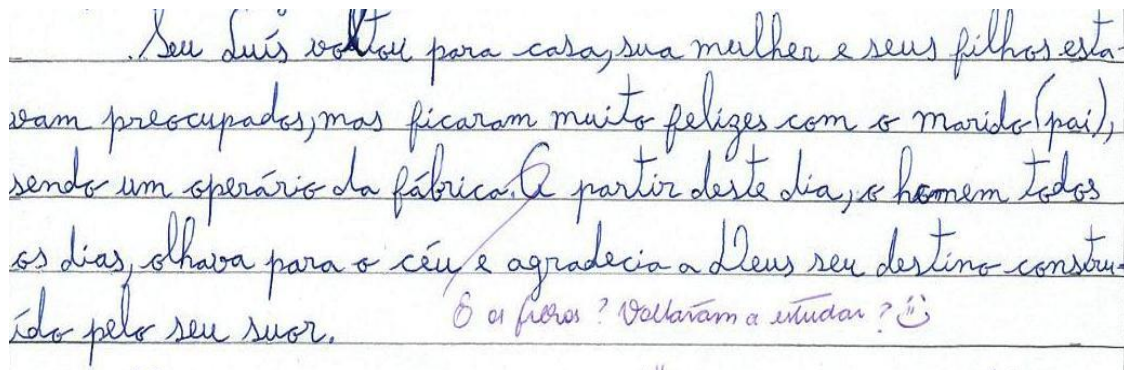 Seu Luís voltou para casa, sua mulher e seus filhos esta-
vam preocupados, mas ficaram muito felizes com o marido (pai),
sendo um operário da fábrica. A partir deste dia, o homem todos
os dias, olhava para o céu e agradecia a Deus seu destino constru-
ído pelo seu suor.
E os filhos? Voltaram a estudar? :)